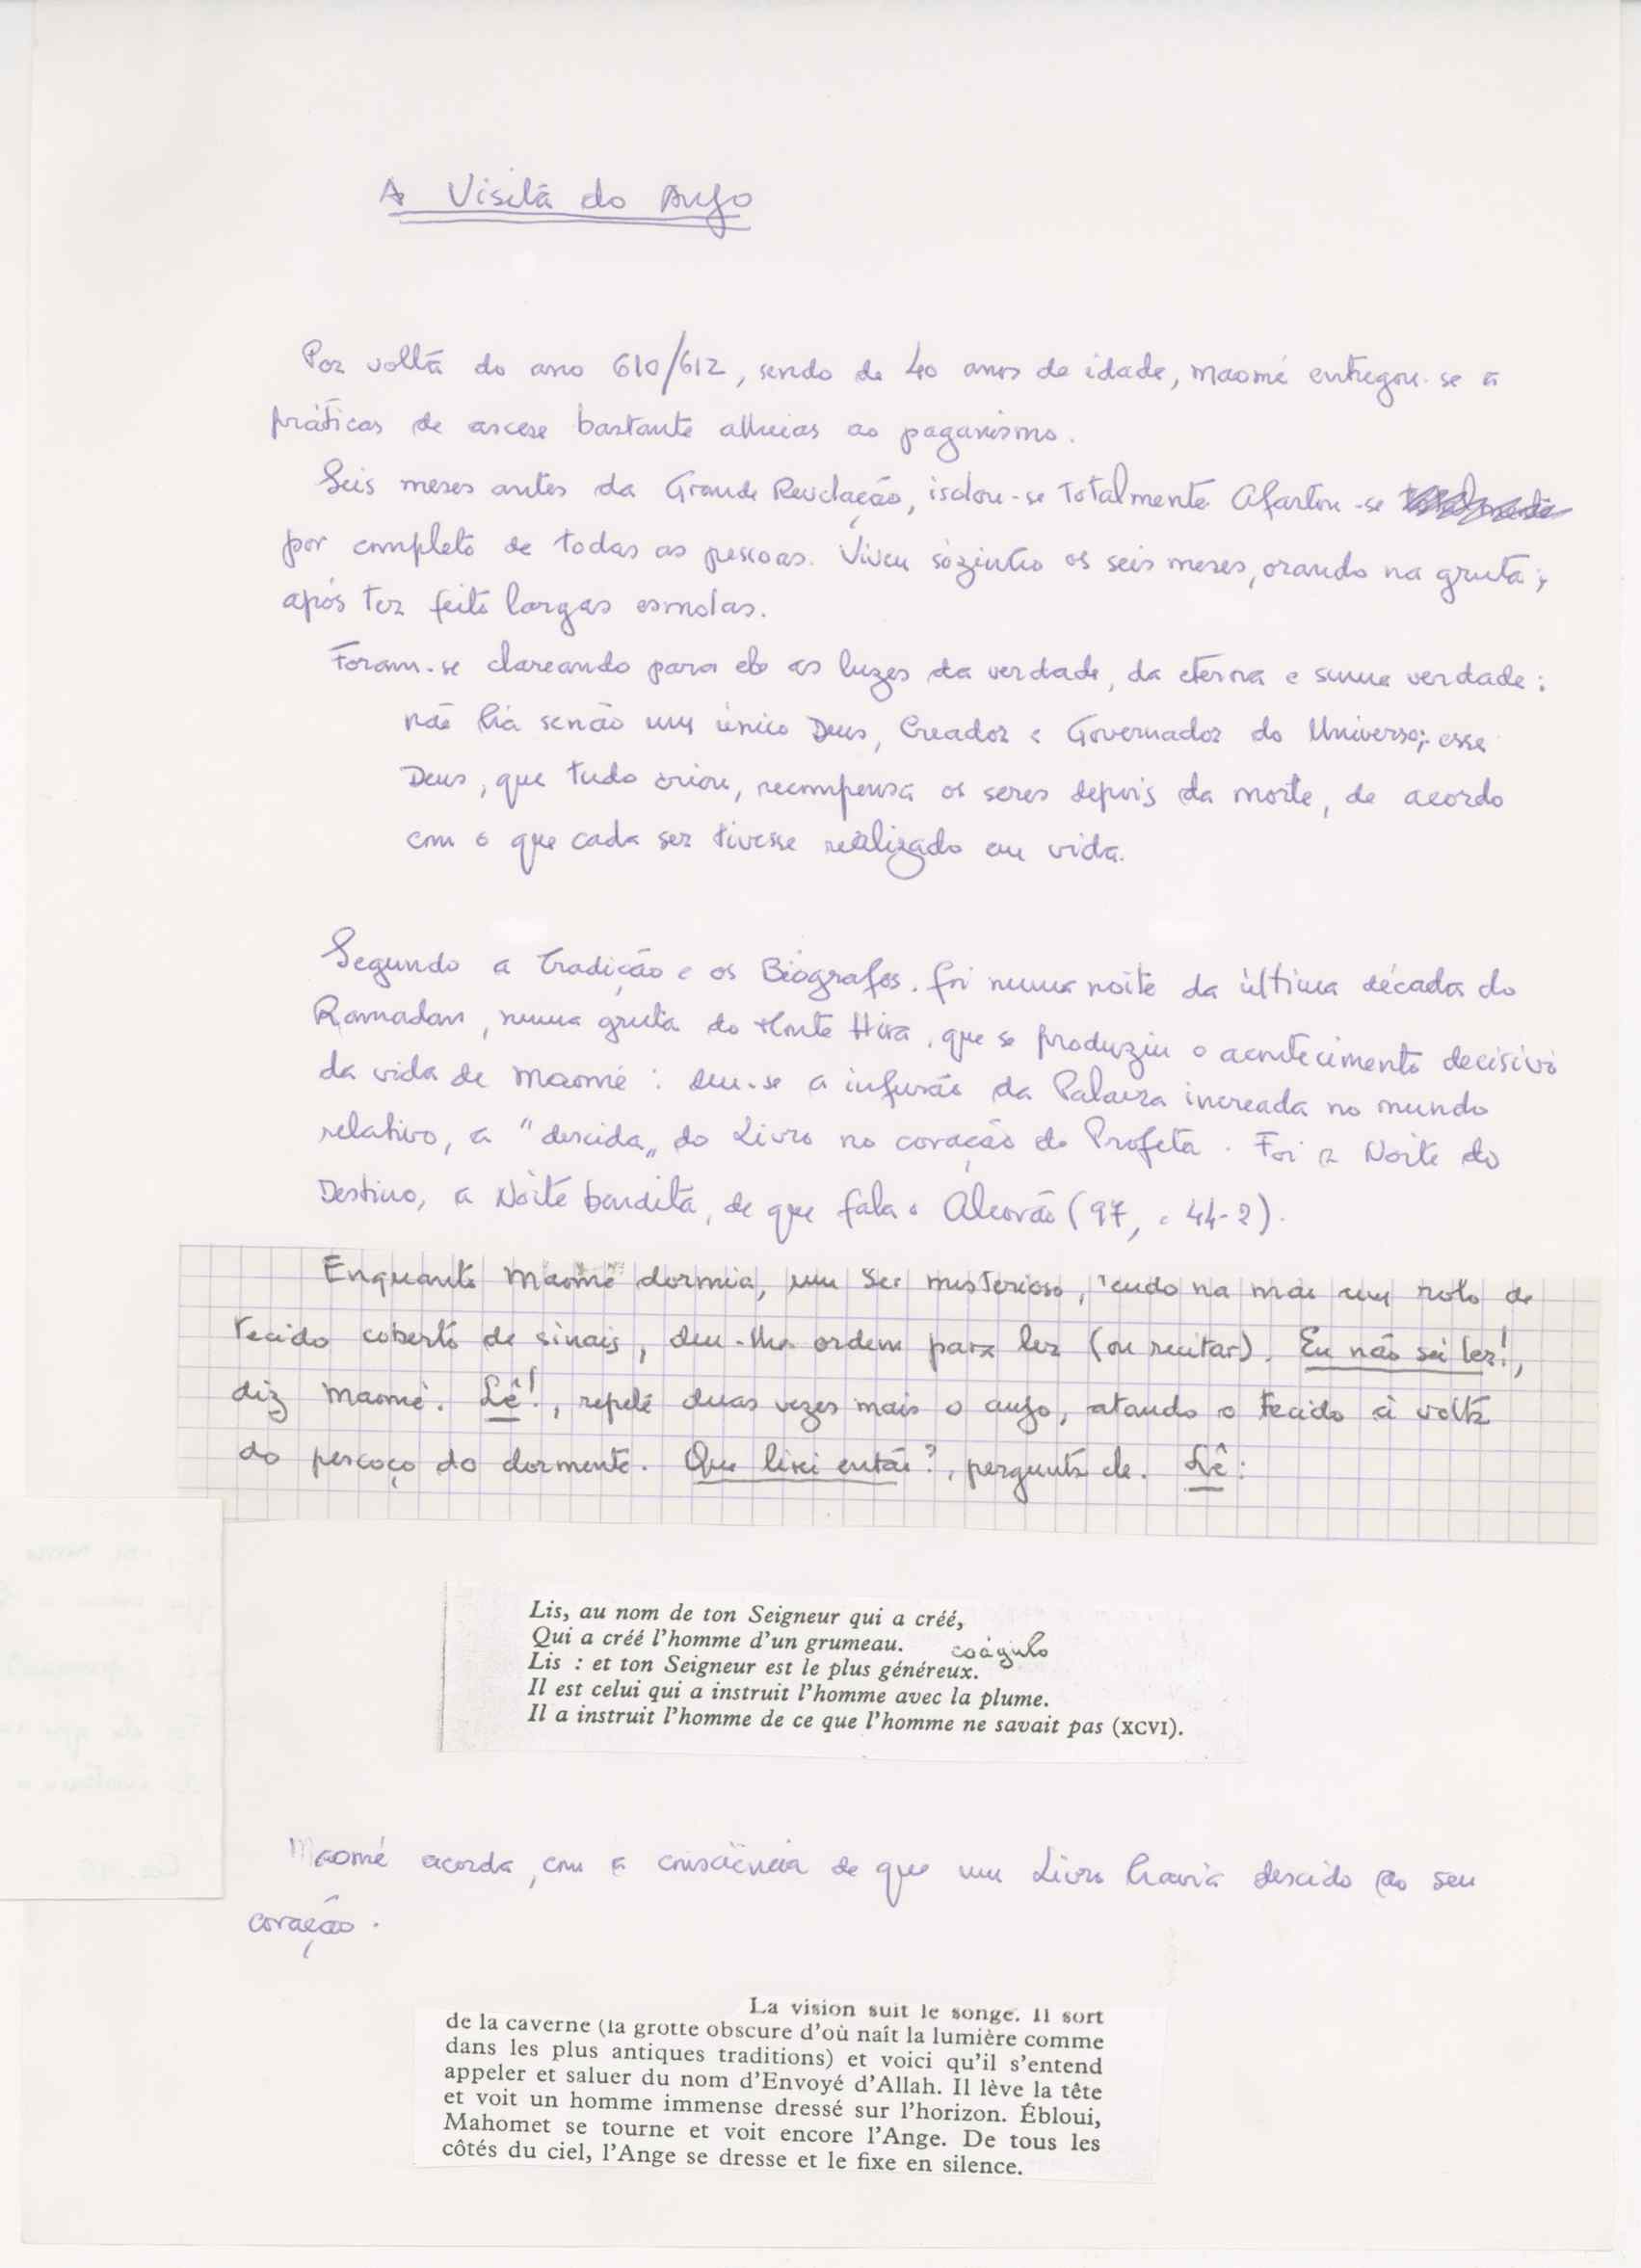 A Visita do Anjo
Por volta do ano 610/612, sendo de 40 anos de idade, Maomé entregou-se a
práticas de ascese bastante alheias ao paganismo.
Seis meses antes da Grande Revelação, isolou-se totalmente. Afastou-se
por completo de todas as pessoas. Viveu sòzinho os seis meses, orando na gruta,
após ter feito largas esmolas.
Foram-se clareando para ele as luzes da verdade, da eterna e suma verdade:
não há senão um único Deus, Creador e Governador do Universo; esse
Deus, que tudo criou, recompensa os seres depois da morte, de acordo
com o que cada ser tivesse realizado em vida.
Segundo a Tradição e os Biógrafos, foi numa noite da última década do
Ramadan, numa gruta do Monte Hira, que se produziu o acontecimento decisivo
da vida de Maomé: deu-se a infusão da Palavra increada no mundo
relativo, a "descida" do Livro no coração do Profeta. Foi a Noite do
Destino, a Noite bendita, de que fala o Alcorão (97, e 44-2).
Enquanto Maomé dormia, um Ser misterioso, tendo na mão um rolo de
tecido coberto de sinais, deu-lhe ordem para ler (ou recitar). Eu não sei ler!,
diz Maomé. Lê!, repete duas vezes mais o anjo, atando o tecido à volta
do pescoço do dormente. Que lirei então?, pergunta ele. Lê:
Lis, au nom de ton Seigneur qui a créé,
Qui a créé l'homme d'un grumeau. coágulo
Lis : et ton Seigneur est le plus généreux.
Il est celui qui a instruit l'homme avec la plume.
Il a instruit l'homme de ce que l'homme ne savait pas (XCVI).
Maomé acorda, com a consciência de que um Livro havia descido ao seu
coração.
La vision suit le songe. Il sort
de la caverne (la grotte obscure d'où naît la lumière comme
dans les plus antiques traditions) et voici qu'il s'entend
appeler et saluer du nom d'Envoyé d'Allah. Il lève la tête
et voit un homme immense dressé sur l'horizon. Ébloui,
Mahomet se tourne et voit encore l'Ange. De tous les
côtés du ciel, l'Ange se dresse et le fixe en silence.